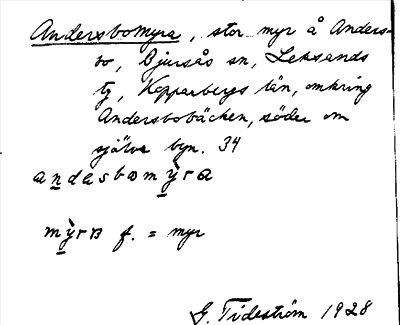 Andersbomyra, stor myr å Anders-
bo, Bjursås sn, Leksands
tg, Kopparbergs län, omkring
Andersbobäcken, söder om
själva byn. 34
andasbomỳra
mỳra f. = myr
G. Tideström 1928